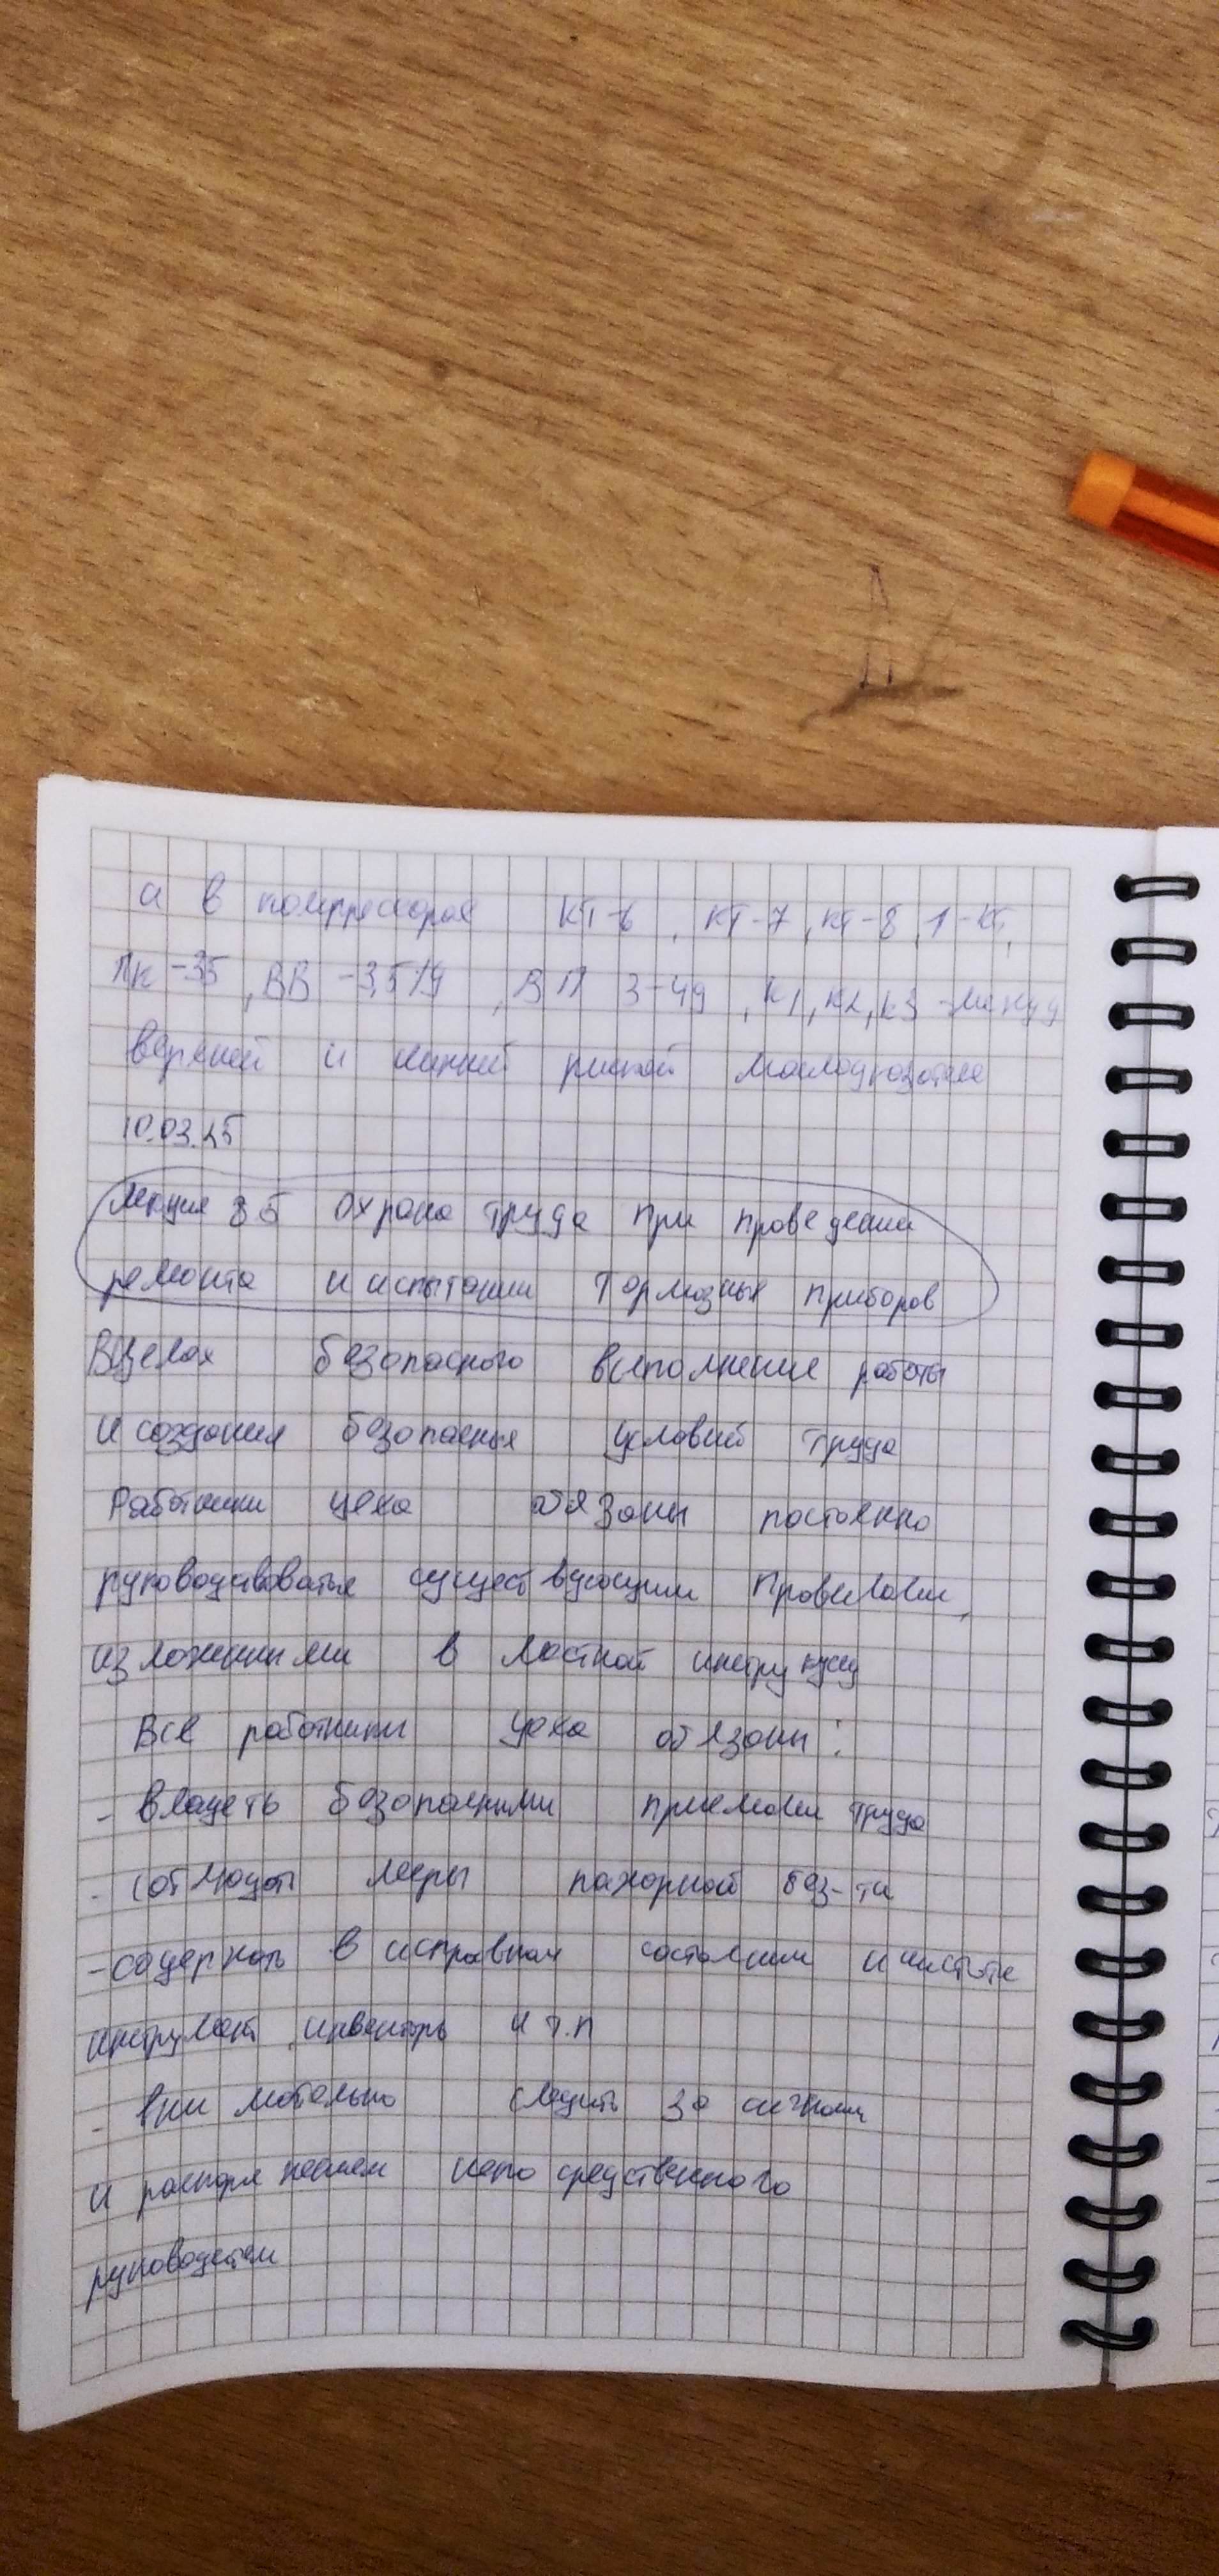 а в компрессорах КТ-6, КТ-7, КТ-8, 1-КТ,
ПК-35, ВВ-3,5/9, ВП 3-4/9, К1, К2, К3 - между
верхней и нижней риской маслоуказателя
10.03.25
Лекция 35 Охрана труда при проведении
ремонта и испытании тормозных приборов
В целях безопасного выполнение работы
и создания безопасных условий труда
Работники цеха обязаны постоянно
руководствоваться существующими Правилами,
изложенными в местной инструкции
Все работники цеха обязаны:
- владеть безопасными приемами труда
- соблюдать меры пожарной без-ти
- содержать в исправном состоянии и чистоте
инструмент, инвентарь и т.п
- внимательно следить за сигналами
и распоряжением непосредственного
руководителем